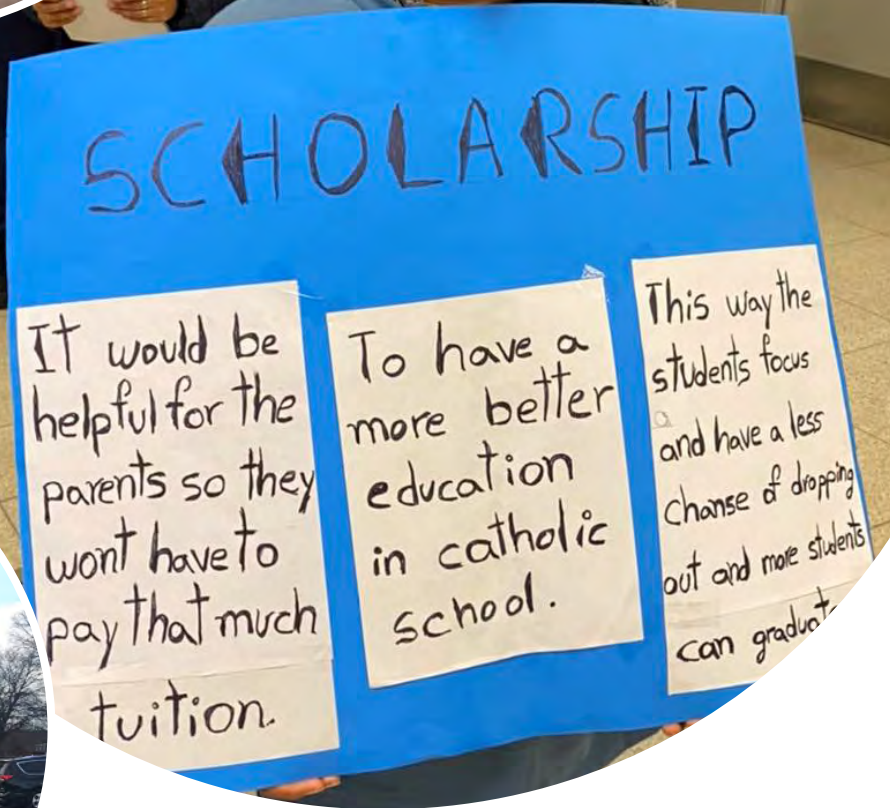 SCHOLARSHIP
It would be
helpful for the
parents so they
wont have to
pay that much
tuition.
To have a
more better
education
in catholic
school.
This way the
students focus
and have a less
chanse of dropping
out and more students
can graduate